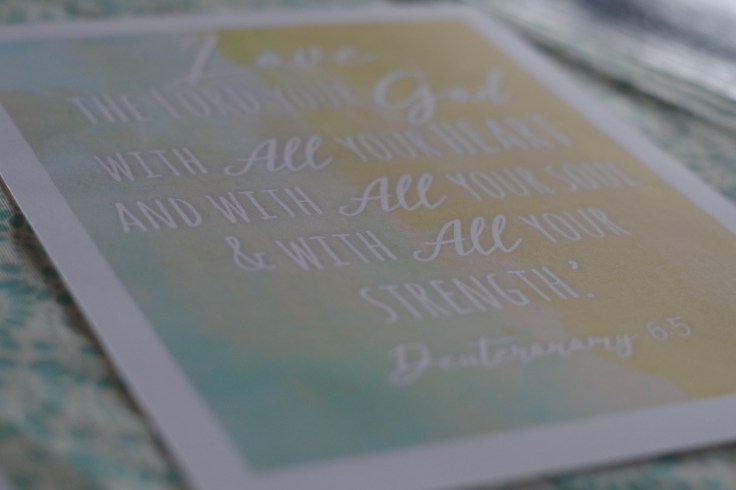 Love
THE LORD YOUR God
WITH All YOUR HEART
AND WITH All YOUR SOUL
& WITH All YOUR
STRENGTH.'
Deuteronomy 6:5